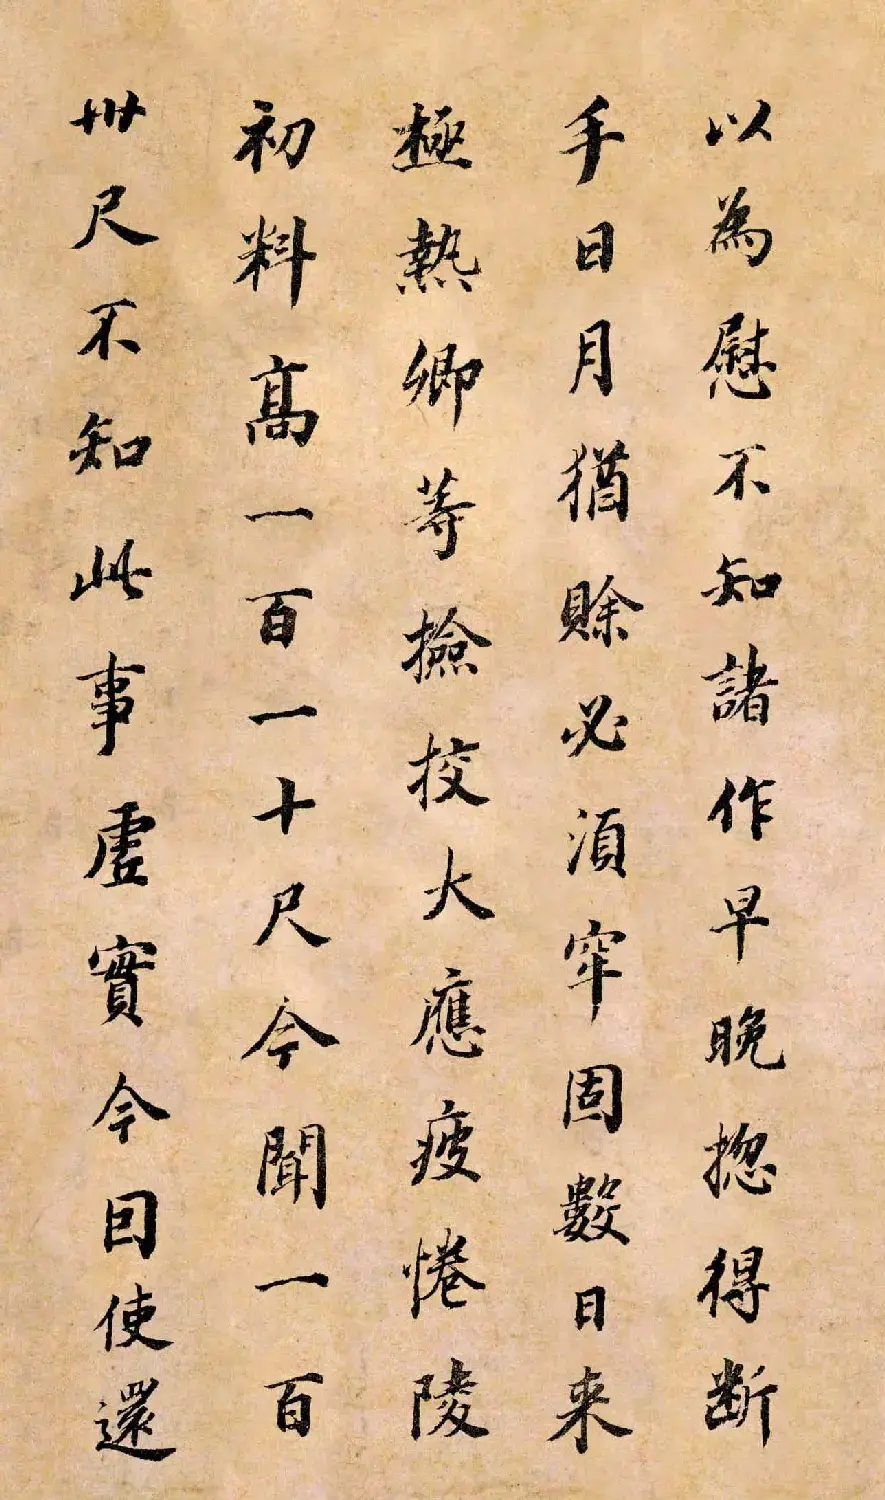 以為慰不知諸作早晚揔得断
手日月猶賒必須牢固數日来
極熱卿等撿挍大應疲惓陵
初料高一百一十尺今聞一百
卅尺不知此事虛實今因使還